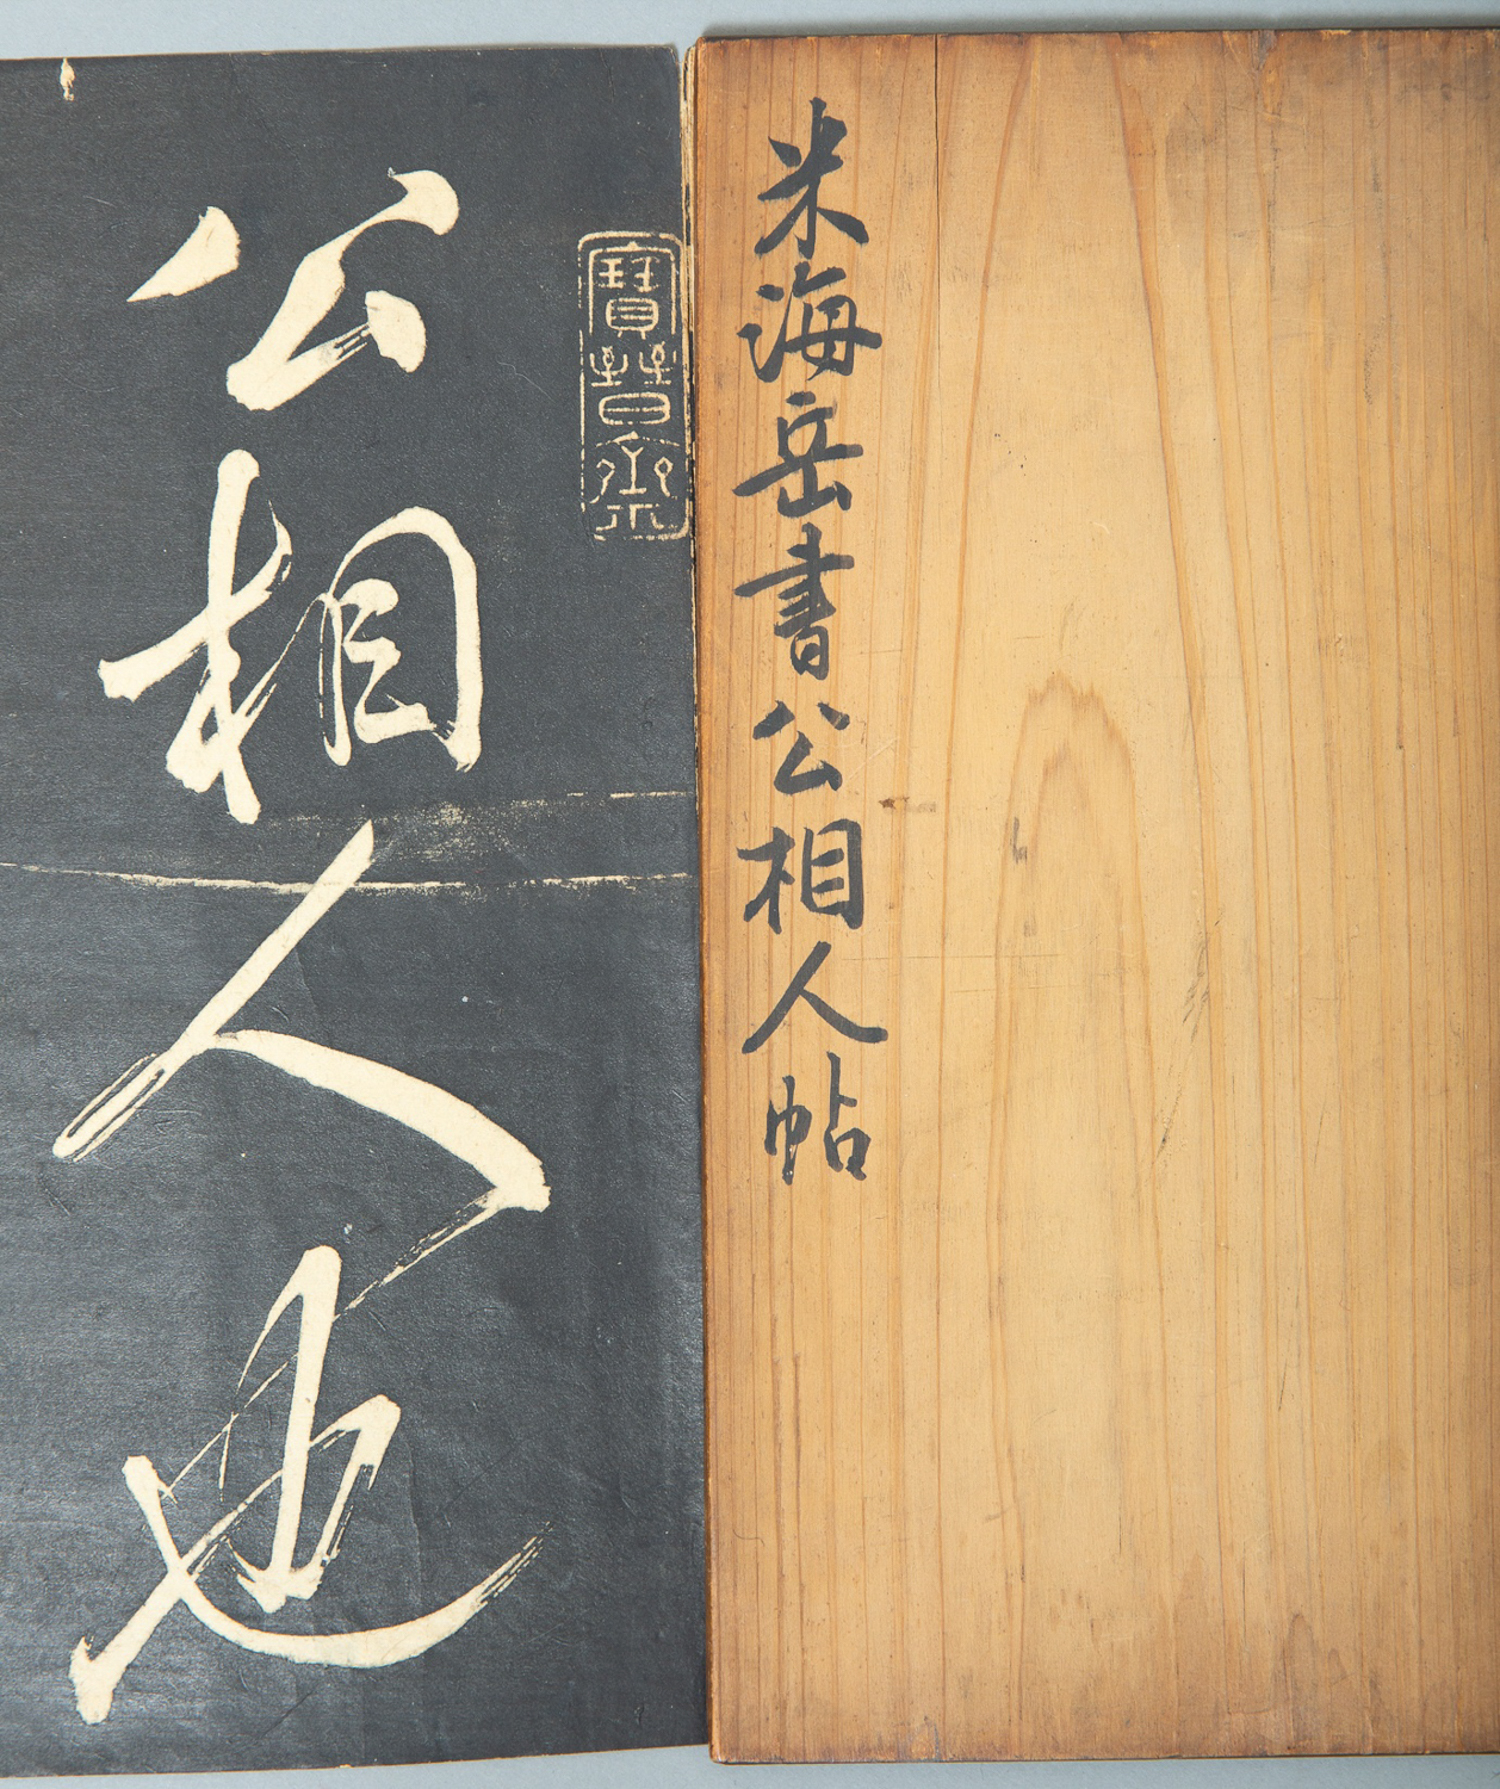 米海岳書公相人帖
寶晉齋
公相人也